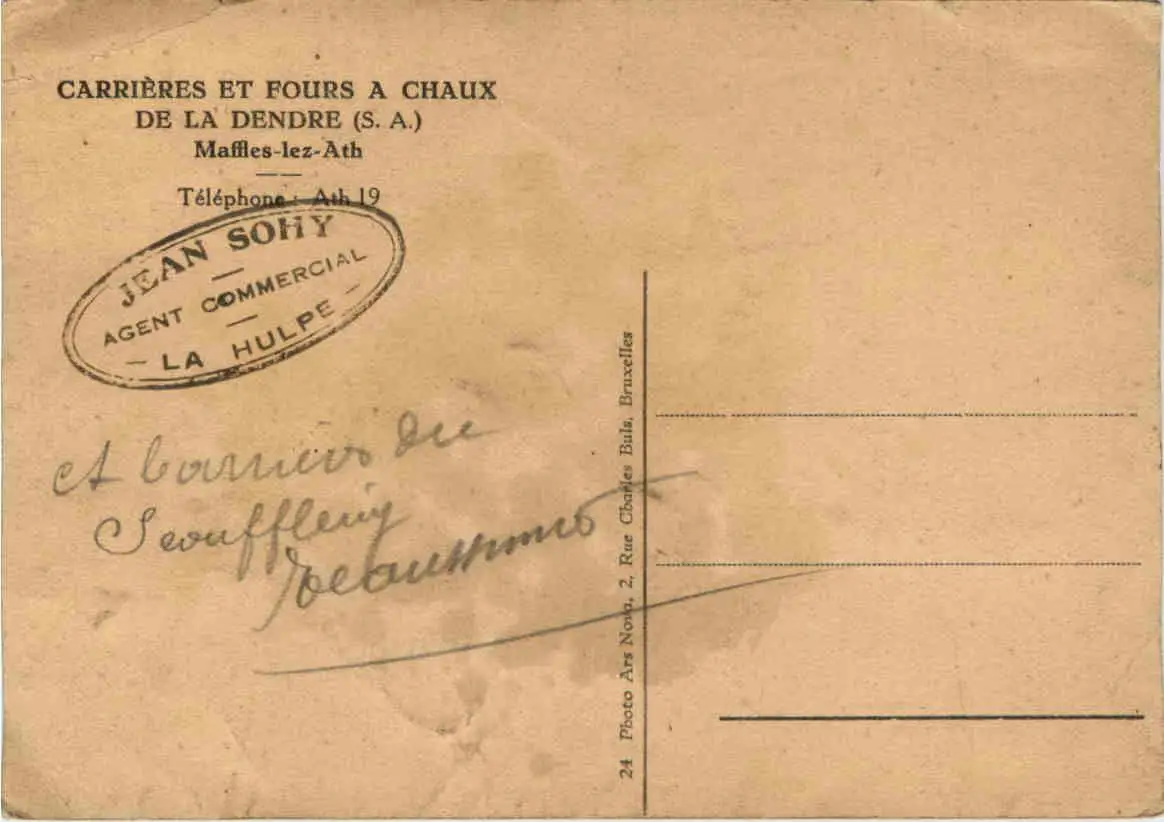 CARRIÈRES ET FOURS A CHAUX
DE LA DENDRE (S. A.)
Maffles-lez-Ath
Téléphone : Ath 19
JEAN SOHY
AGENT COMMERCIAL
LA HULPE
du
Scoufflény
24 Photo Ars Nova, 2, Rue Charles Buls, Bruxelles